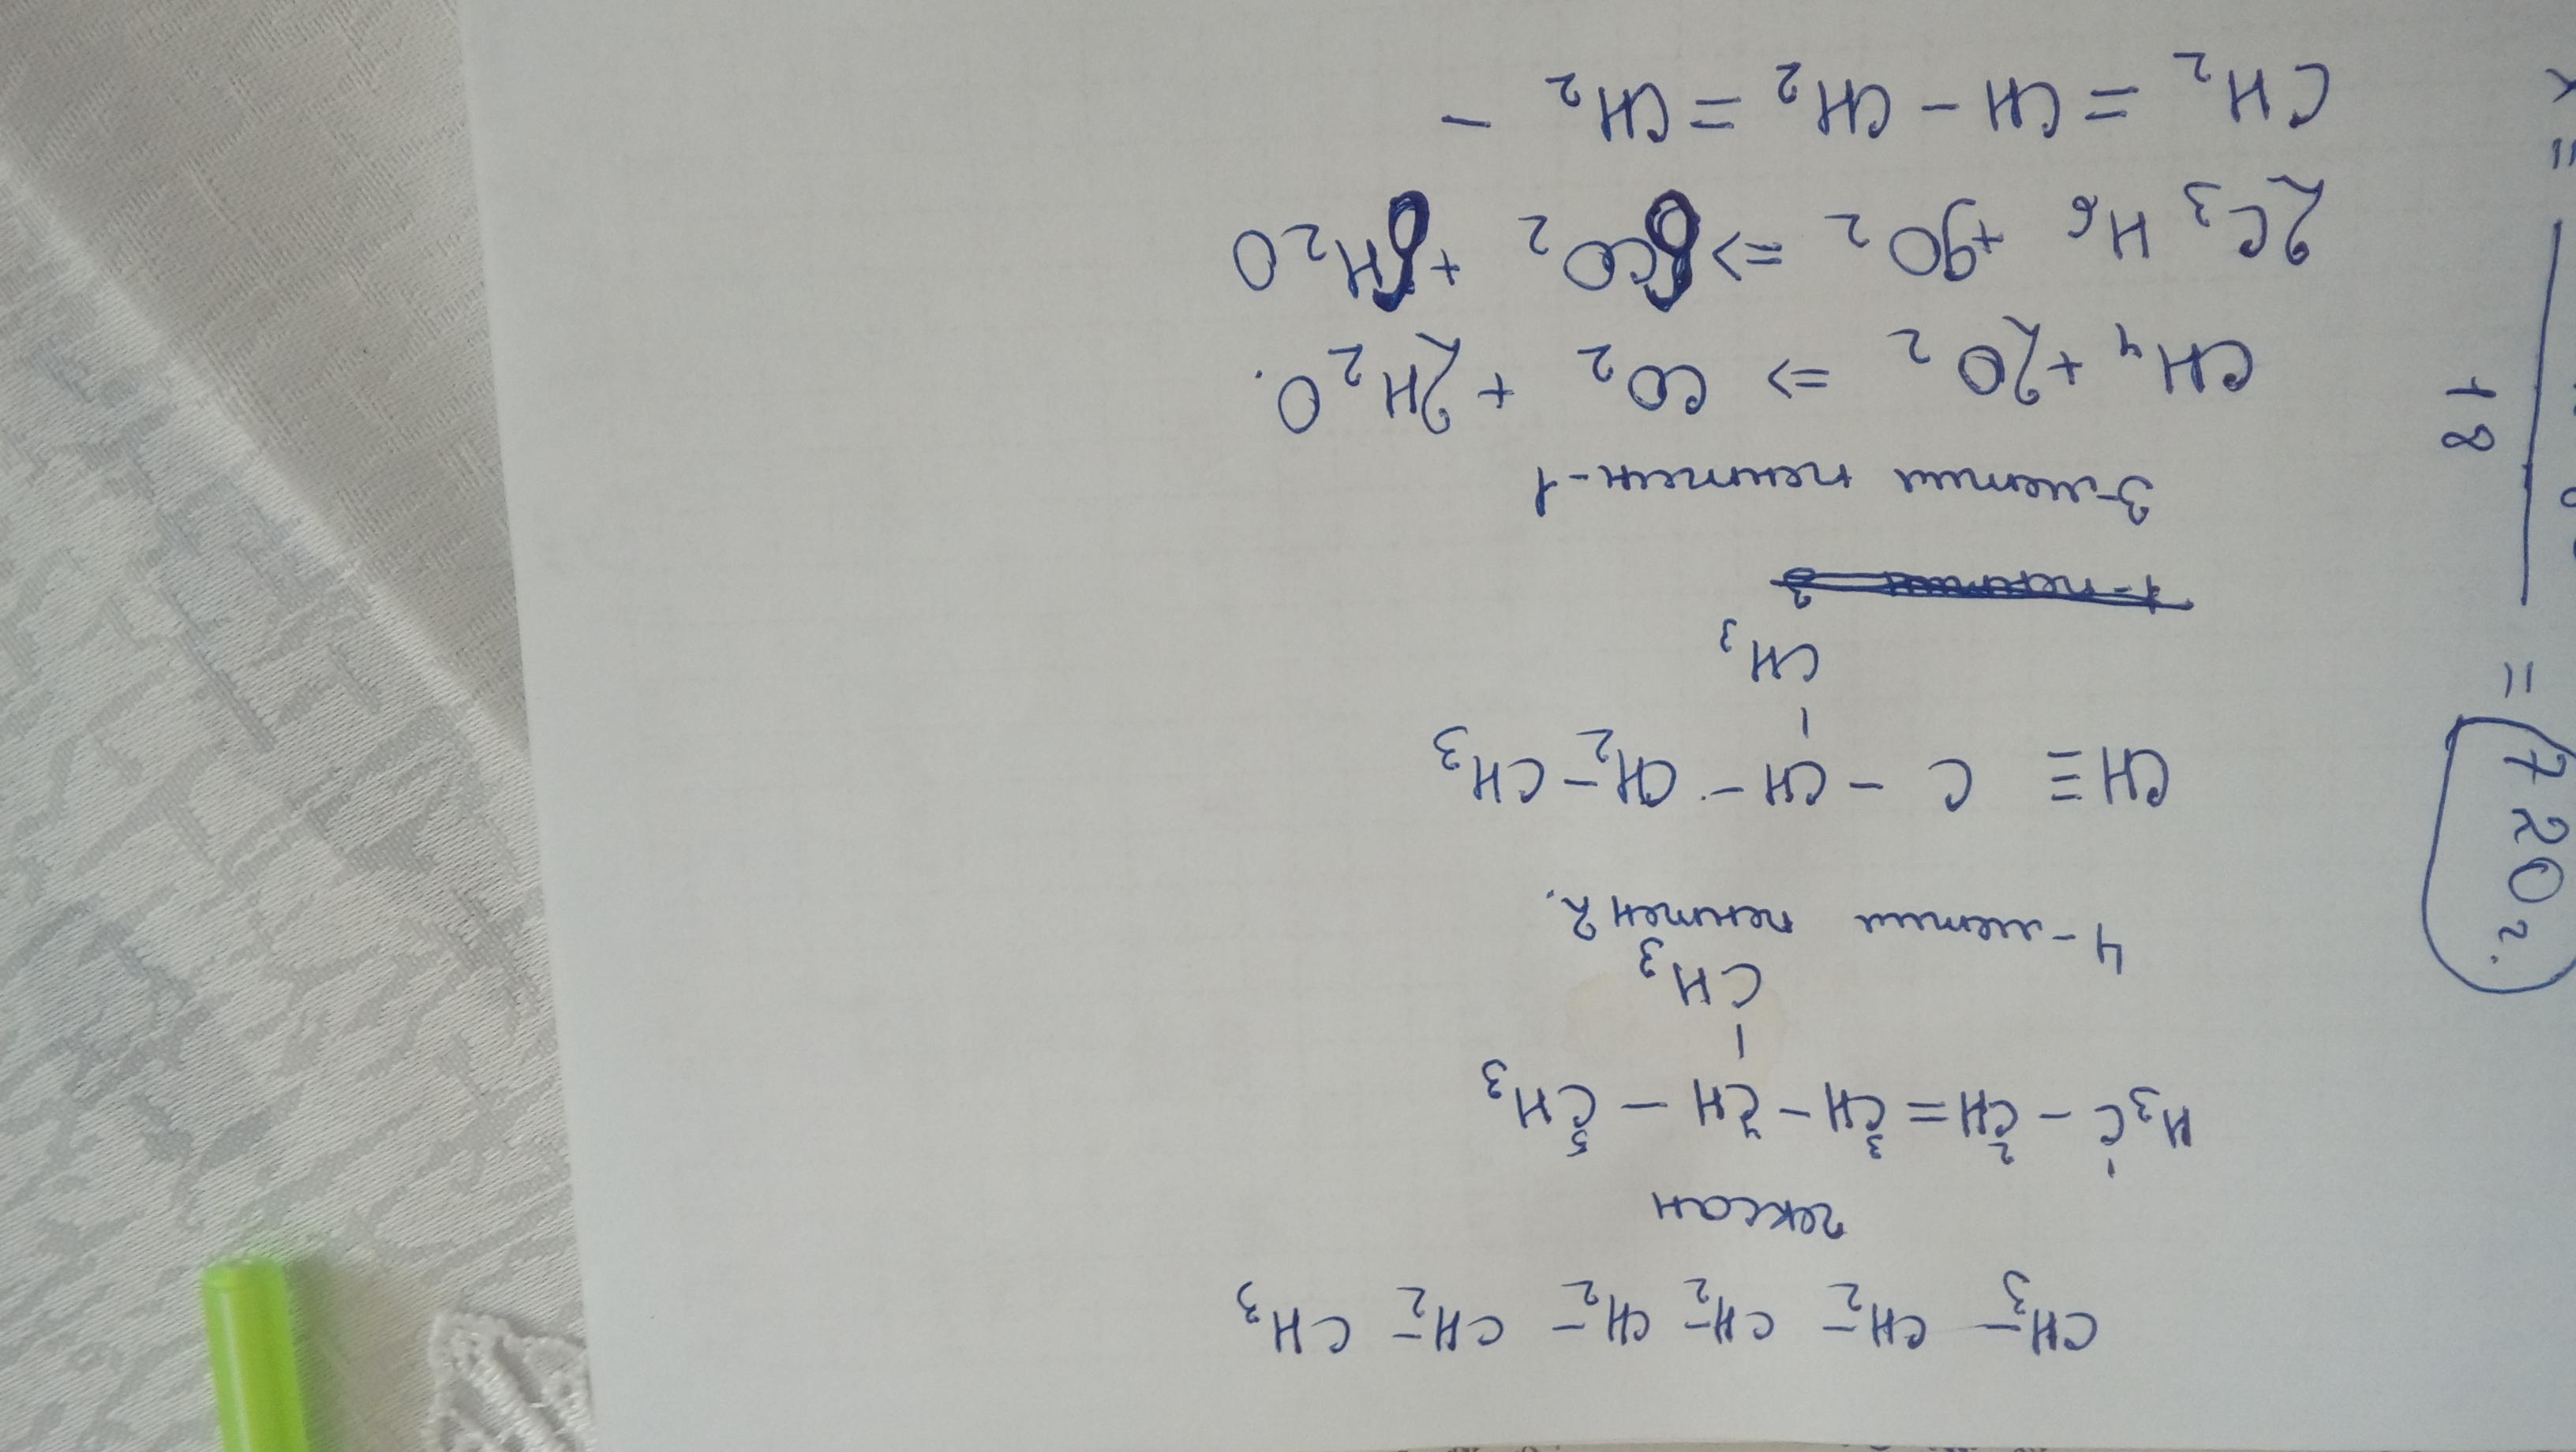 CH₃ - CH₂ - CH₂ - CH₂ - CH₂ - CH₃
гексан
1 2 3 4 5
H₃C - CH = CH - CH - CH₃
CH₃
4-метил пентен 2.
CH ≡ C - CH - CH₂ - CH₃
CH₃
3-метил пентин-1
CH₄ + 2O₂ => CO₂ + 2H₂O.
2C₃H₆ + 9O₂ => 6CO₂ + 6H₂O
CH₂ = CH - CH₂ = CH₂ -
18
= 720 г.